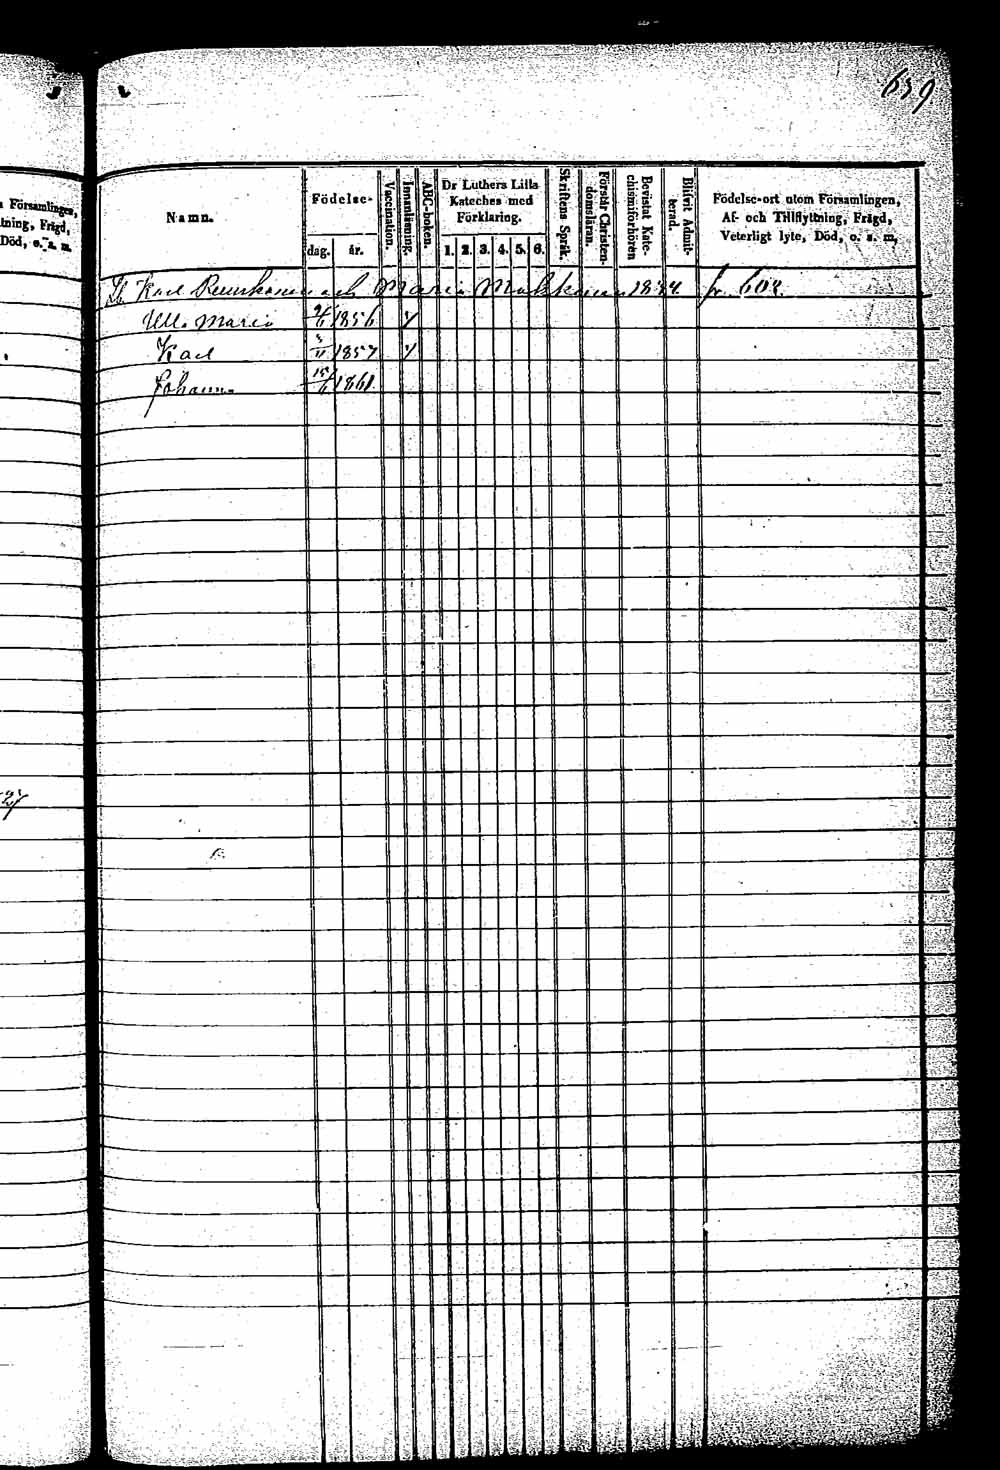 659
Församlingen,
ning, Frägd,
Död, o. s. m.
Namn.
Födelse-
dag. år.
Vaccination.
Innanläsning.
ABC-boken.
Dr Luthers Lilla
Kateches med
Förklaring.
1. 2. 3. 4. 5. 6.
Skriftens Språk.
Förstår Christen-
domsläran.
Bevistat Kate-
chismiförhören
Blifvit Admit-
terad.
Födelse-ort utom Församlingen,
Af- och Tillflyttning, Frägd,
Veterligt lyte, Död, o. s. m,
Karl och Maria fr. 604.
Ulla Maria 1856
Karl 1857
Johann 15/6 1861
27